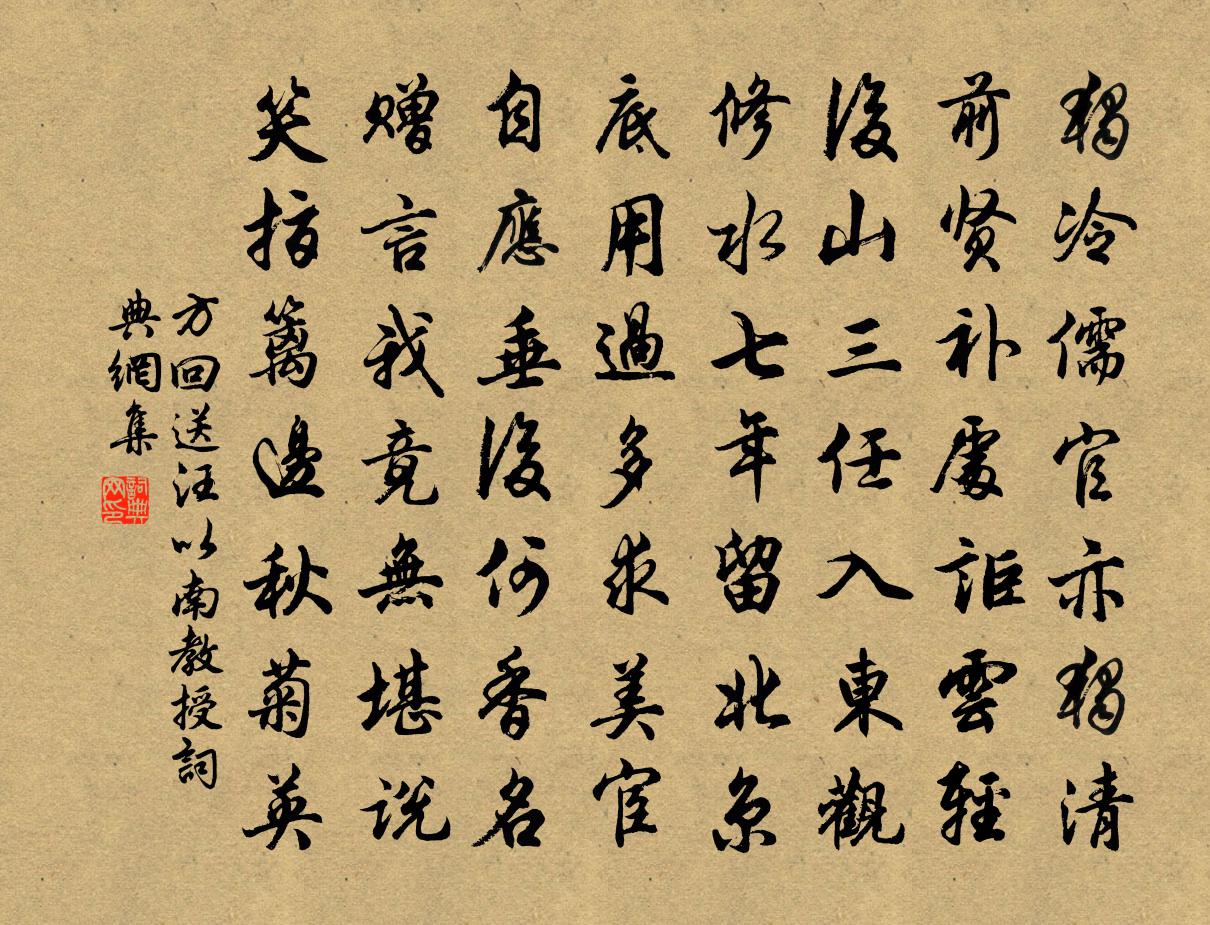 獨冷儒官亦獨清
前贤补處詎雲輕
後山三任入東觀
修水七年留北京
底用過多求美官
自應垂後何香名
赠言我竟無堪说
笑指篱邊秋菊英
方回送汪以南教授詞
典網集
詞典网印